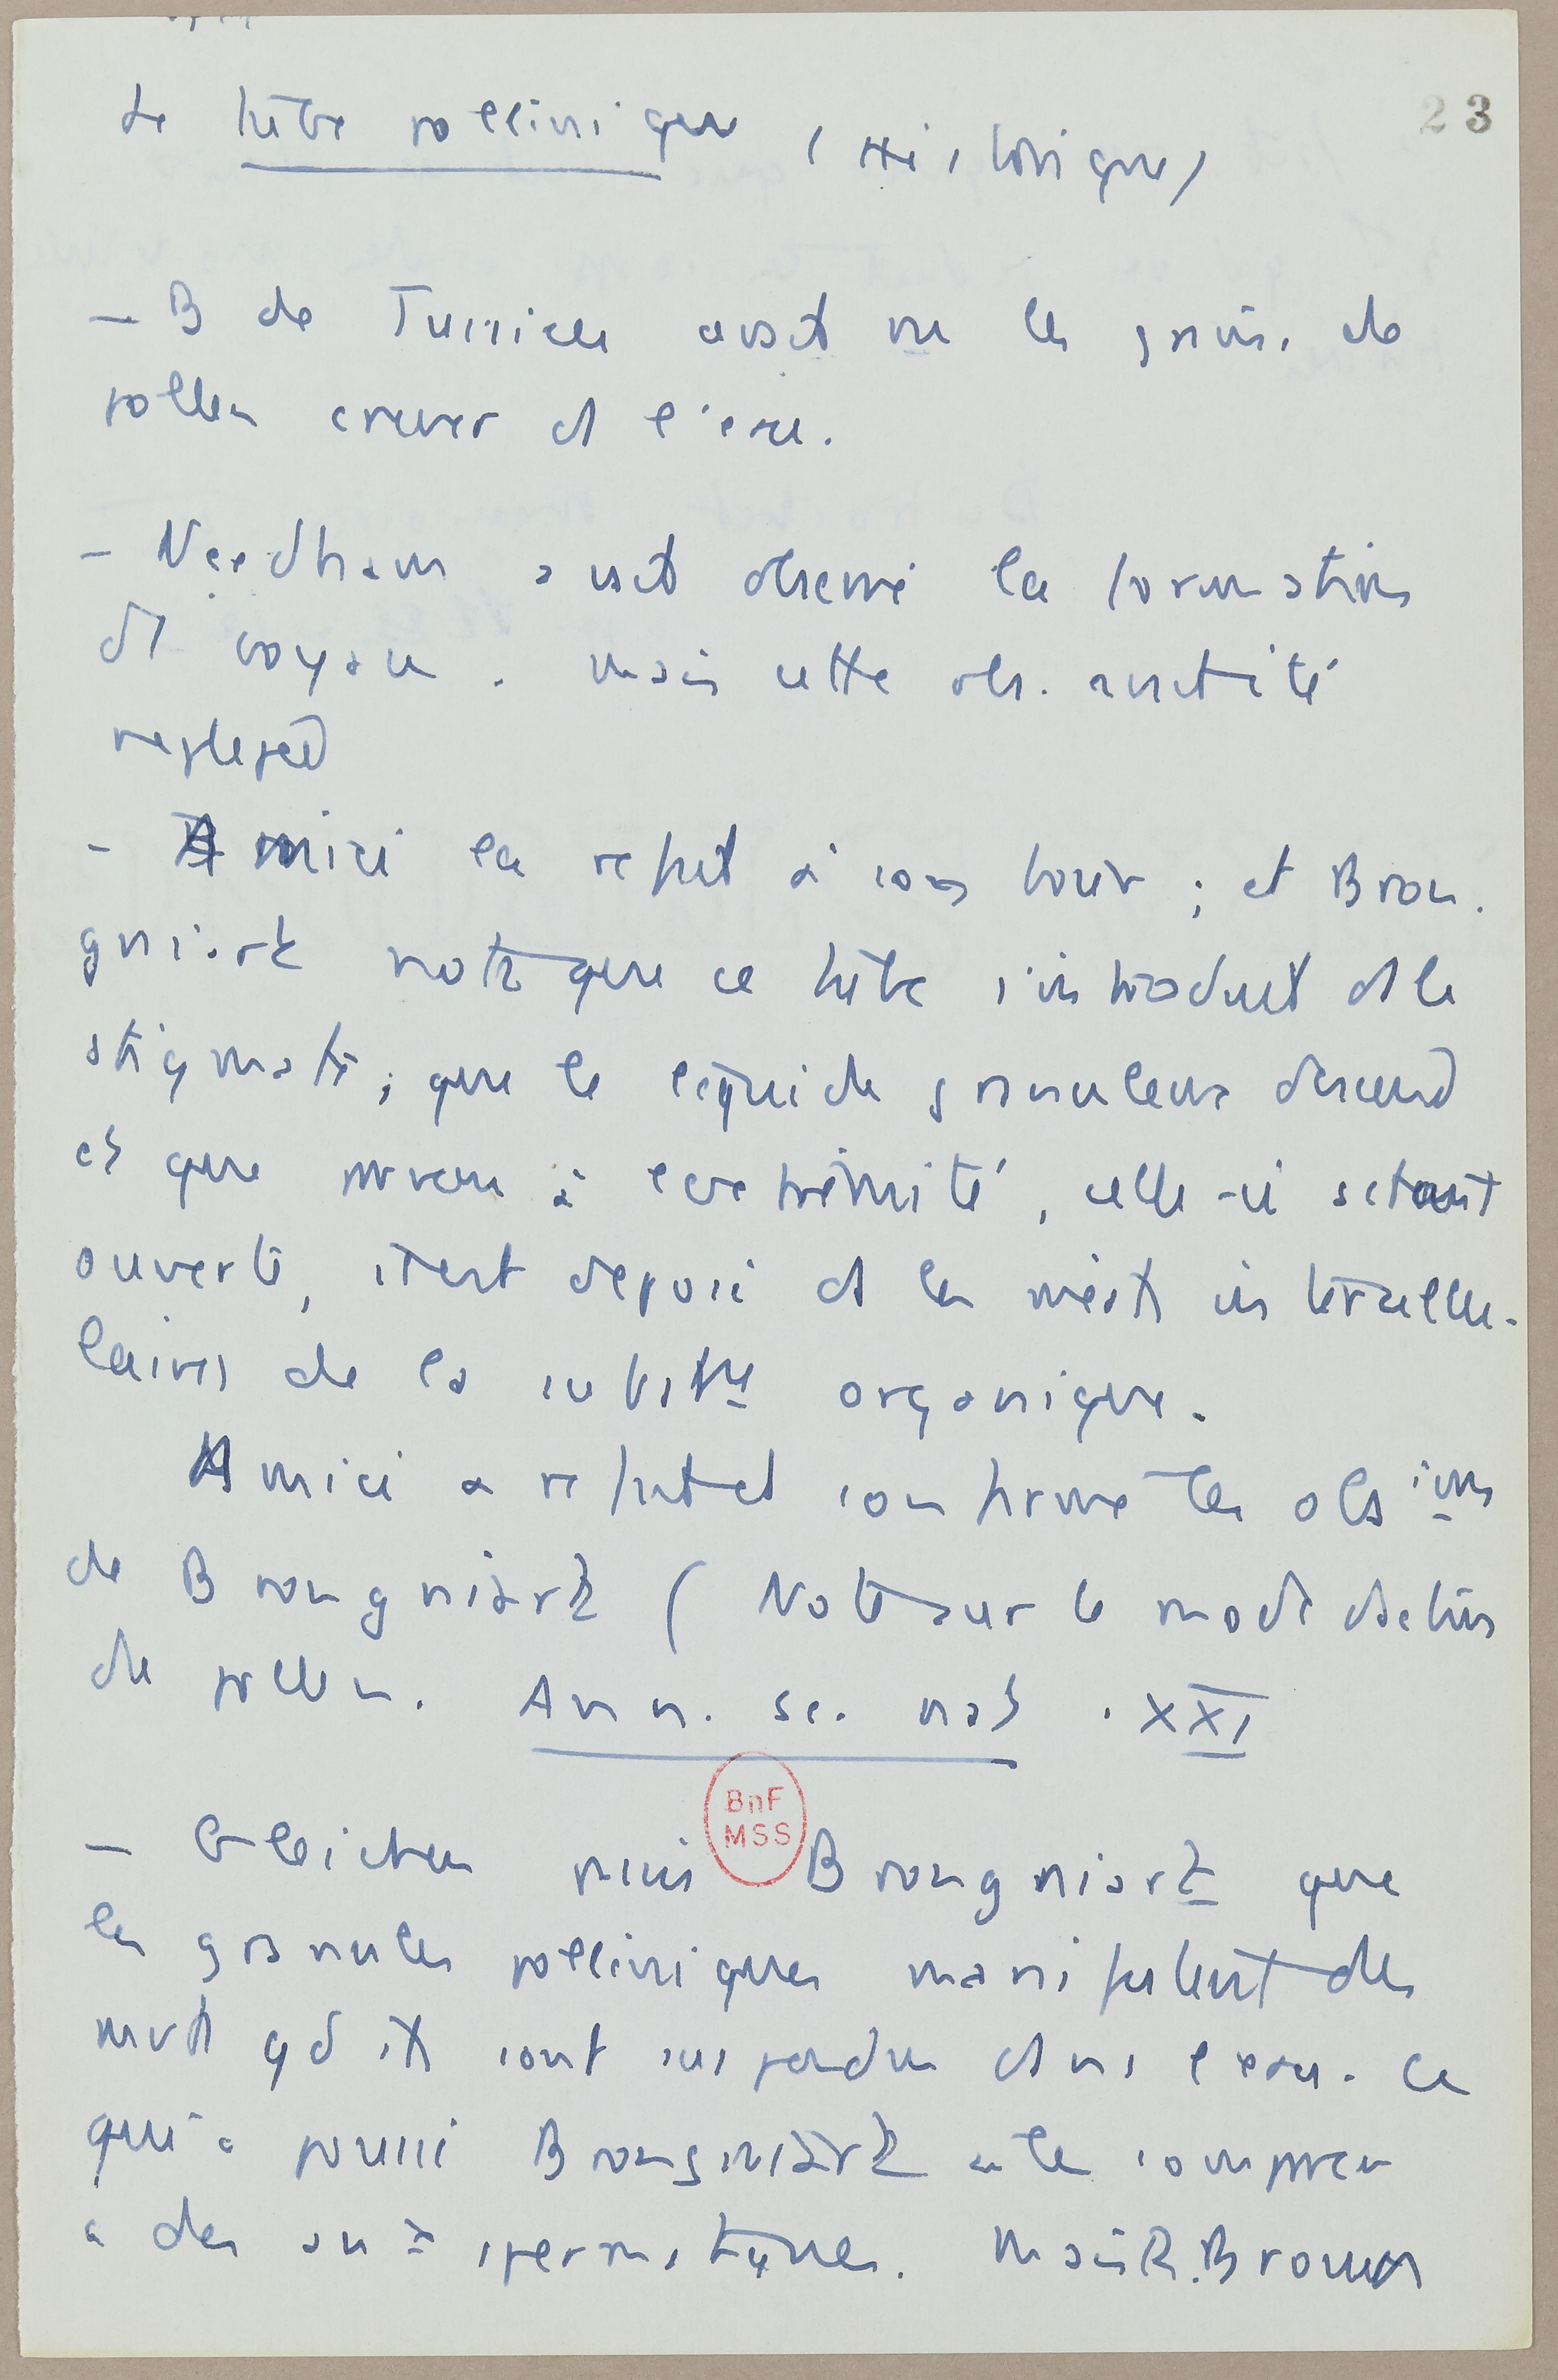 23
Le tube pollinique (Historique)
– B de Jussieu avait vu les grains de
pollen crever ds l'eau.
– Needham avait observé la formation
du boyau. mais cette obs. avait été
negligée
– Amici la refait à son tour ; et Bron.
gniart note que ce tube s'introduit ds le
stigmate, que le liquide granuleux descend
et que parvenu à extrémité, celle-ci s'étant
ouverte, il est déposé ds les méats intercellu-
laires de la subst ce organique.
Amici a refait et confirmé les obs ions
de Brongniart (Note sur le mode d'action
du pollen. Ann. sc. nat . XXI
– Gleichen puis Brongniart que
les granules polliniques manifestent des
mvts qd ils sont suspendus dans l'eau. Ce
qui a poussé Brongniart à les comparer
à des an x spermatiques. Mais R. Brown
BnF
MSS